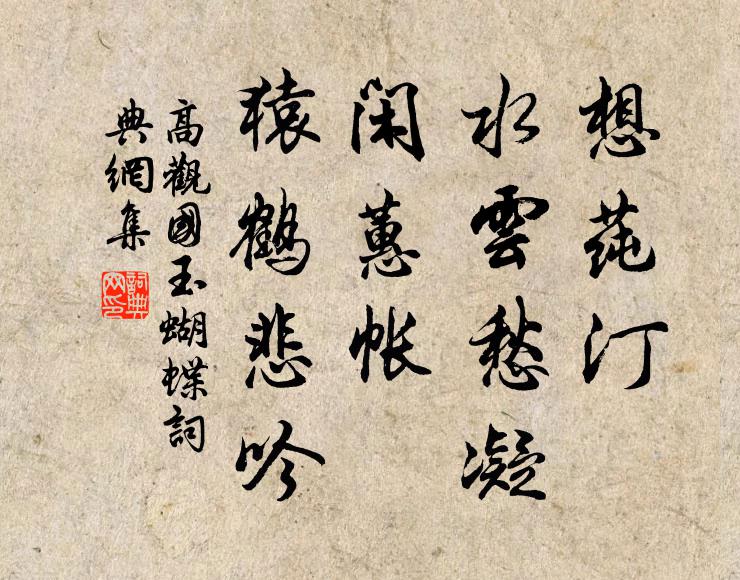 想莼汀
水雲愁凝
閑蕙帐
猿鶴悲吟
高觀國玉蝴蝶詞
典網集
詞典
网印